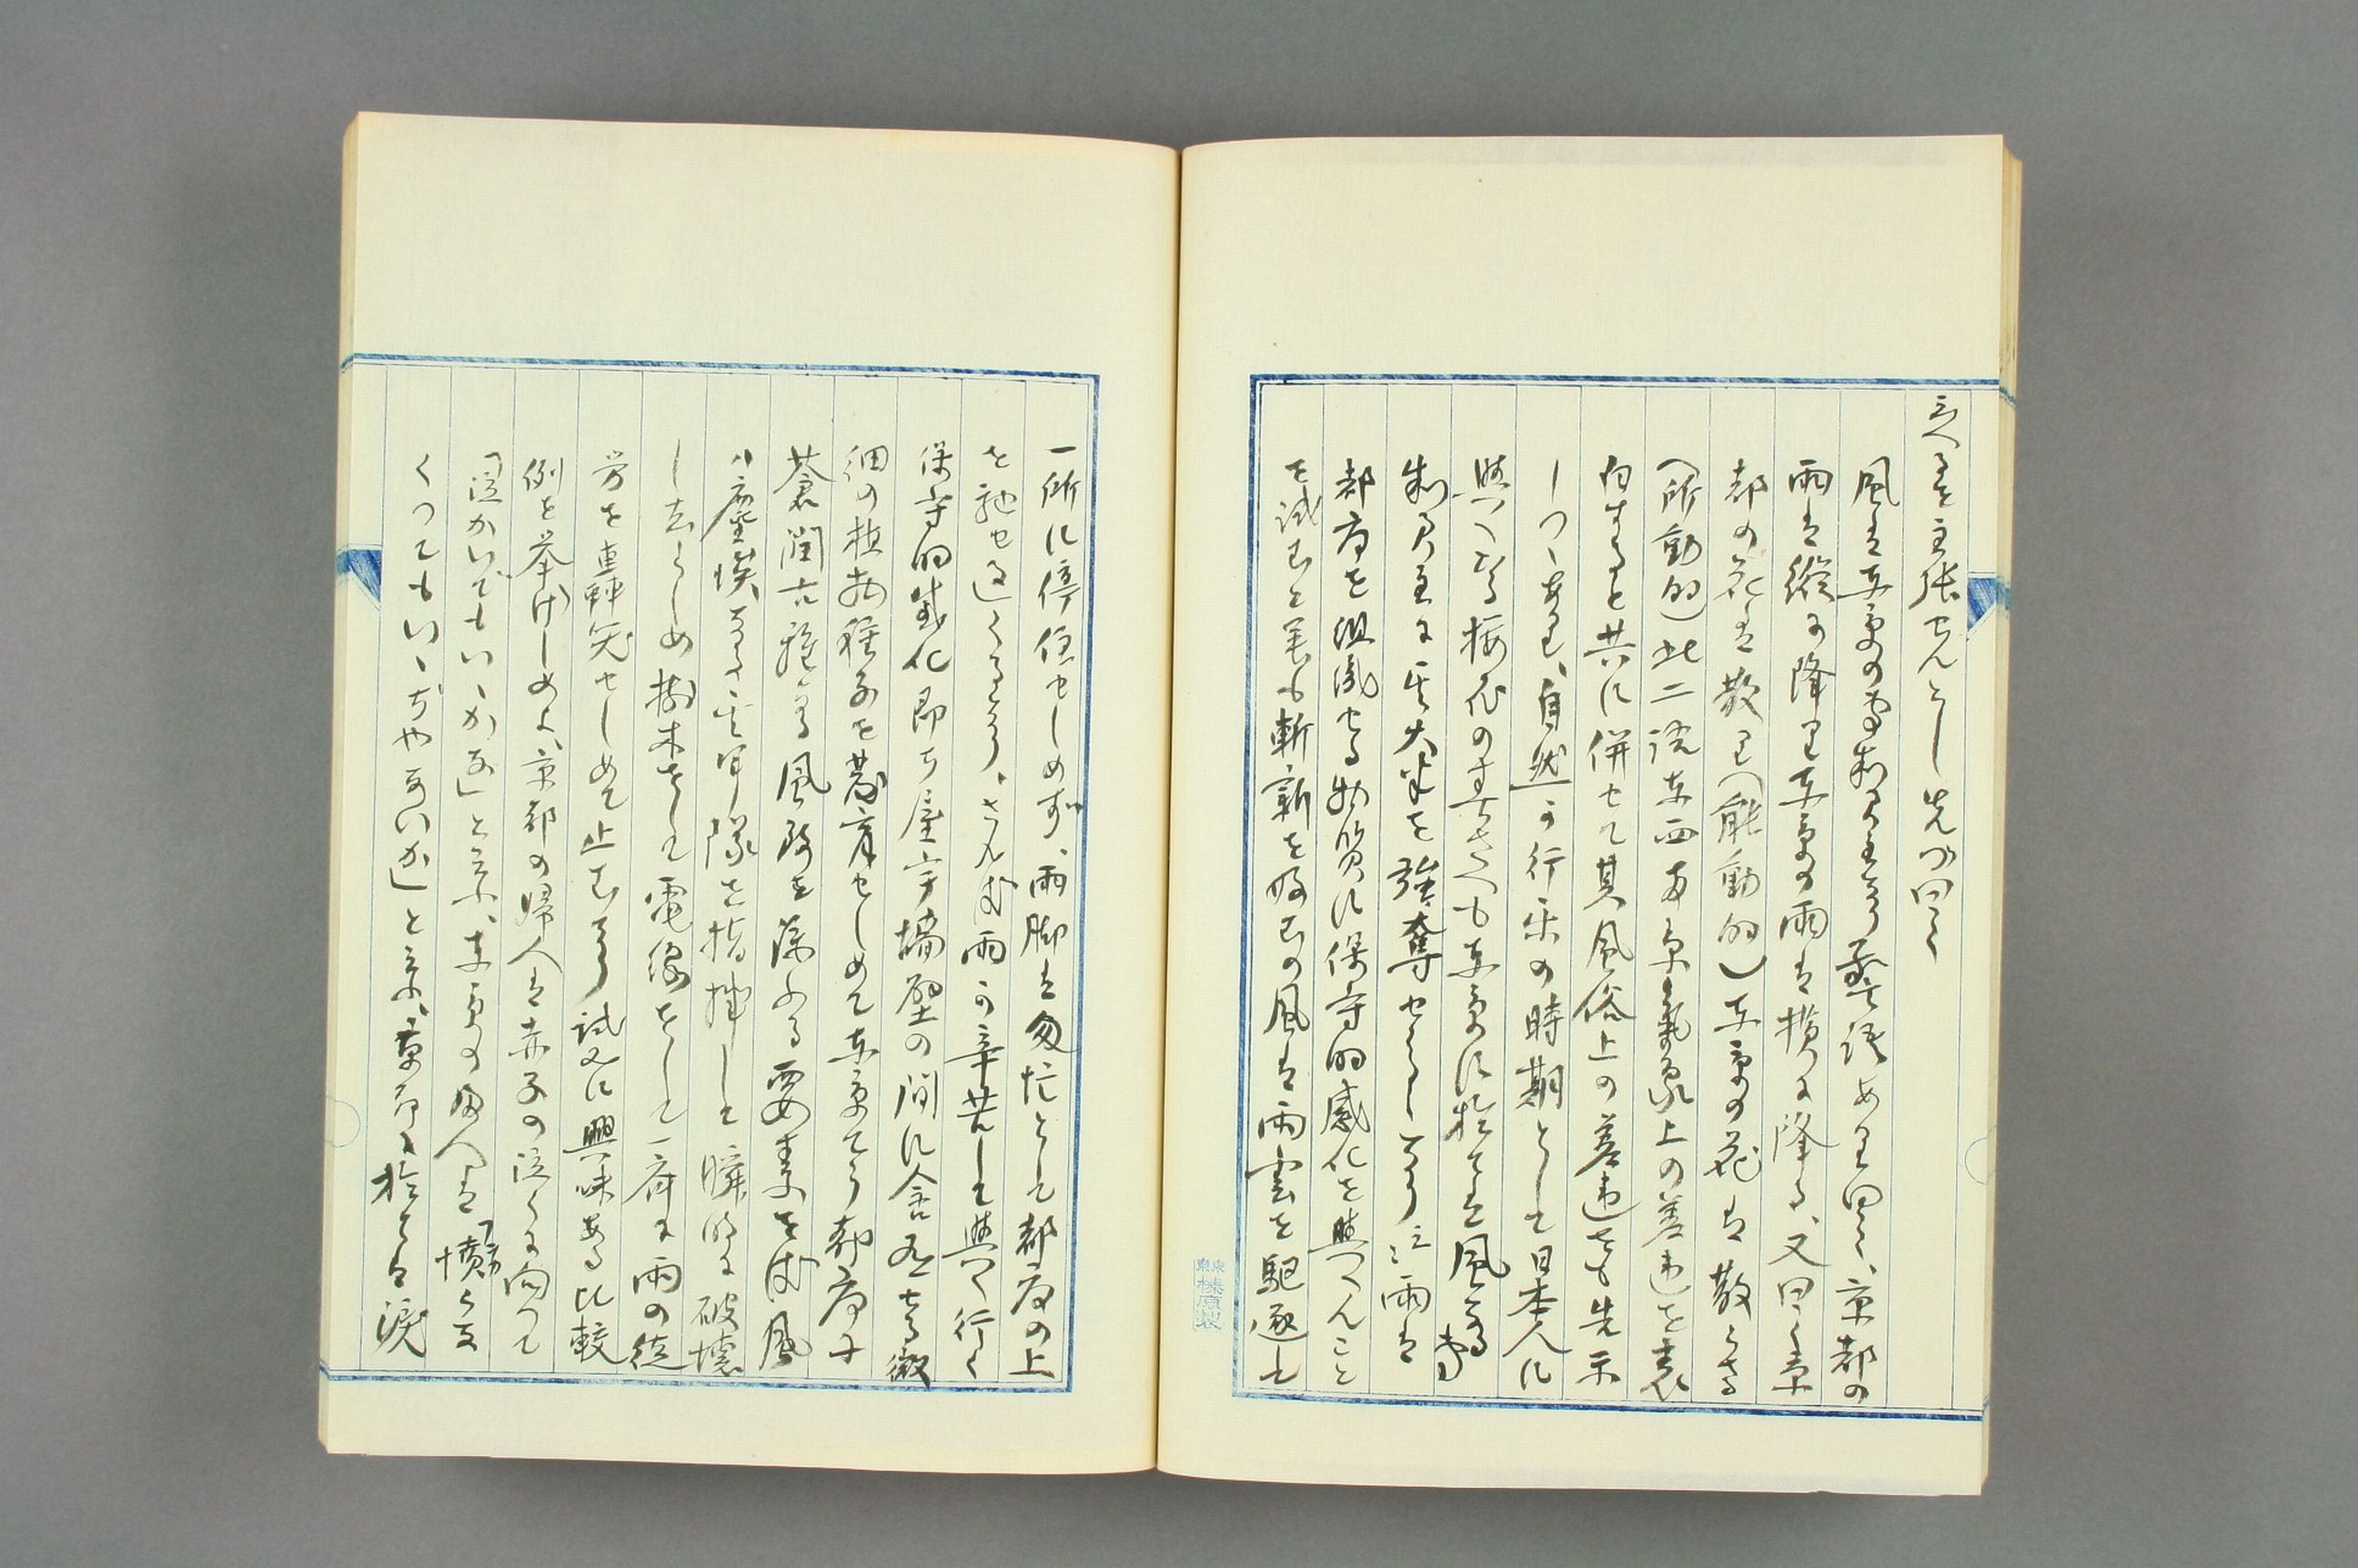 云へるを主張せんとし先づ曰く
風は東京の専制君主なり 蓋し諺あり曰く、京都の
雨は縦に降り東京の雨は横に降る、又曰く京
都の花は散り(能動的)東京の花は散らさる
(所動的)此二諺東西両京気象上の差違を表
白すると共に併せて其風俗上の差違をも先示
しつゝあり、自然の行楽の時期として日本人に
与へたる桜花の事さへも東京に於ては風なる専
制君主に其大半を強奪せらるゝなり 江雨は
都府を組成せる物質に保守的感化を与へんこと
を試むと雖も斬新を好むの風は雨雲を駆逐し
一所に停住せしめず、雨脚は匆忙として都府の上
を馳せ過くるなり、されば雨の辛苦して与へ行く
保守的感化即ち屋宇墻壁の間に含有する微
細の植物種子を発育せしめて東京てう都府に
蒼潤古雅なる風致を添ふる要素をば風
は塵埃なる其軍隊を指揮して瞬時に破壊
し去らしめ樹木をして電線をして一斉に雨の徒
労を連軒笑せしめて止むなり 試みに興味ある比較
例を挙げしめよ、京都の婦人は赤子の泣くに向つて
「泣かいでもいゝがな」と云ふ、東京の婦人は「憤らな
くつてもいゝぢやないか」と云ふ、京都に於ては涙